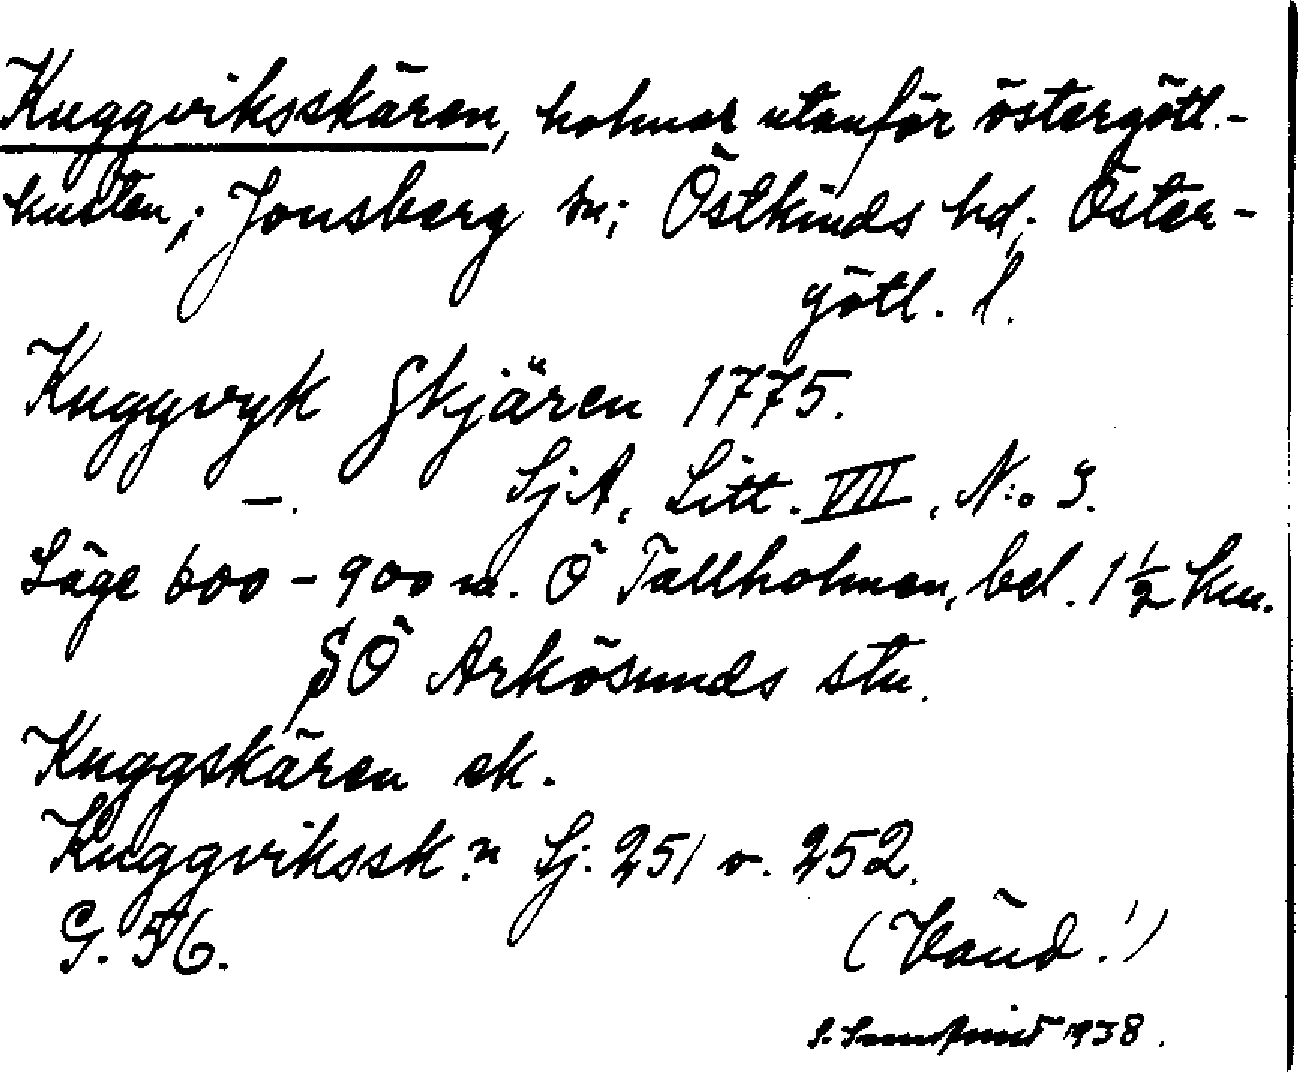 Kuggviksskären, holmar utanför östergötl.-
kusten; Jonsberg sn; Östkinds hd; Öster-
götl. l.
Kuggvyk Skjären 1775.
—. SjA, Litt. VIII, N:o 3.
Läge 600 - 900 m. Ö Tallholmen, bel. 1 1/2 km.
SÖ Arkösunds stn.
Kuggskären ek.
Kuggvikssk:n Sj. 251 o. 252.
G. 56.
(Vänd!)
1938.